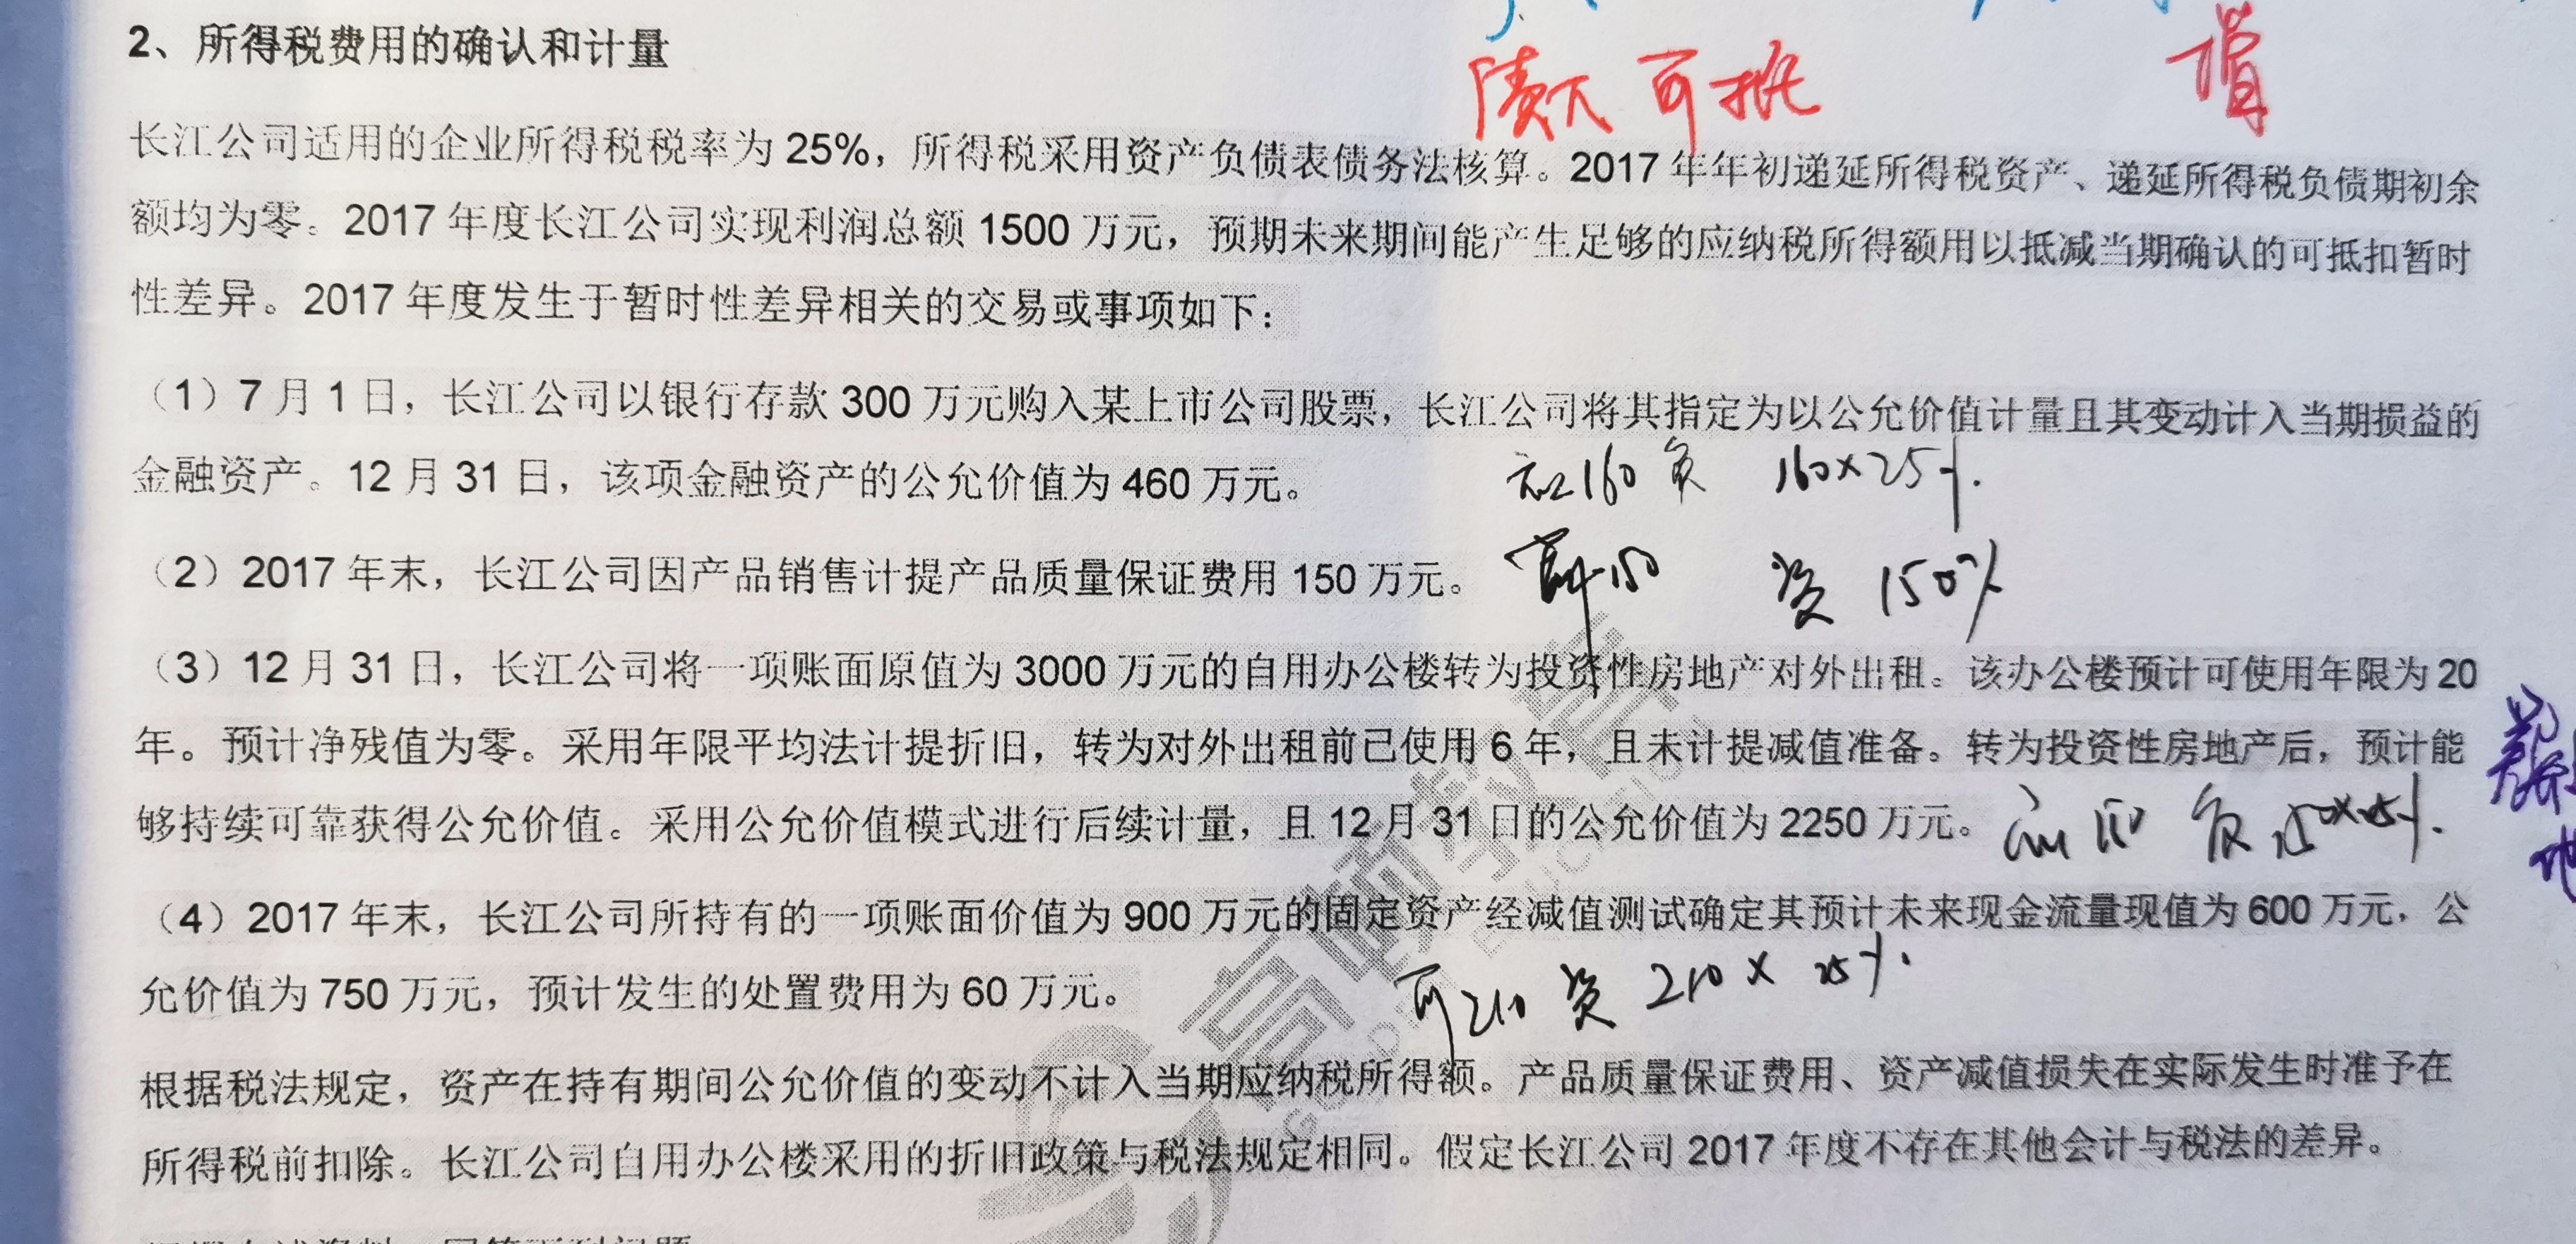 2、所得税费用的确认和计量
债大 可抵
长江公司适用的企业所得税税率为 25%，所得税采用资产负债表债务法核算。2017 年年初递延所得税资产、递延所得税负债期初余
额均为零。2017 年度长江公司实现利润总额 1500 万元，预期未来期间能产生足够的应纳税所得额用以抵减当期确认的可抵扣暂时
性差异。2017 年度发生于暂时性差异相关的交易或事项如下：
（1）7 月 1 日，长江公司以银行存款 300 万元购入某上市公司股票，长江公司将其指定为以公允价值计量且其变动计入当期损益的
金融资产。12 月 31 日，该项金融资产的公允价值为 460 万元。
160 负 160×25%.
（2）2017 年末，长江公司因产品销售计提产品质量保证费用 150 万元。
150 资 150%
（3）12 月 31 日，长江公司将一项账面原值为 3000 万元的自用办公楼转为投资性房地产对外出租。该办公楼预计可使用年限为 20
年。预计净残值为零。采用年限平均法计提折旧，转为对外出租前已使用 6 年，且未计提减值准备。转为投资性房地产后，预计能
够持续可靠获得公允价值。采用公允价值模式进行后续计量，且 12 月 31 日的公允价值为 2250 万元。
负 150×25%.
（4）2017 年末，长江公司所持有的一项账面价值为 900 万元的固定资产经减值测试确定其预计未来现金流量现值为 600 万元，公
允价值为 750 万元，预计发生的处置费用为 60 万元。
可210 资 210 × 25%.
根据税法规定，资产在持有期间公允价值的变动不计入当期应纳税所得额。产品质量保证费用、资产减值损失在实际发生时准予在
所得税前扣除。长江公司自用办公楼采用的折旧政策与税法规定相同。假定长江公司 2017 年度不存在其他会计与税法的差异。
高顿教育